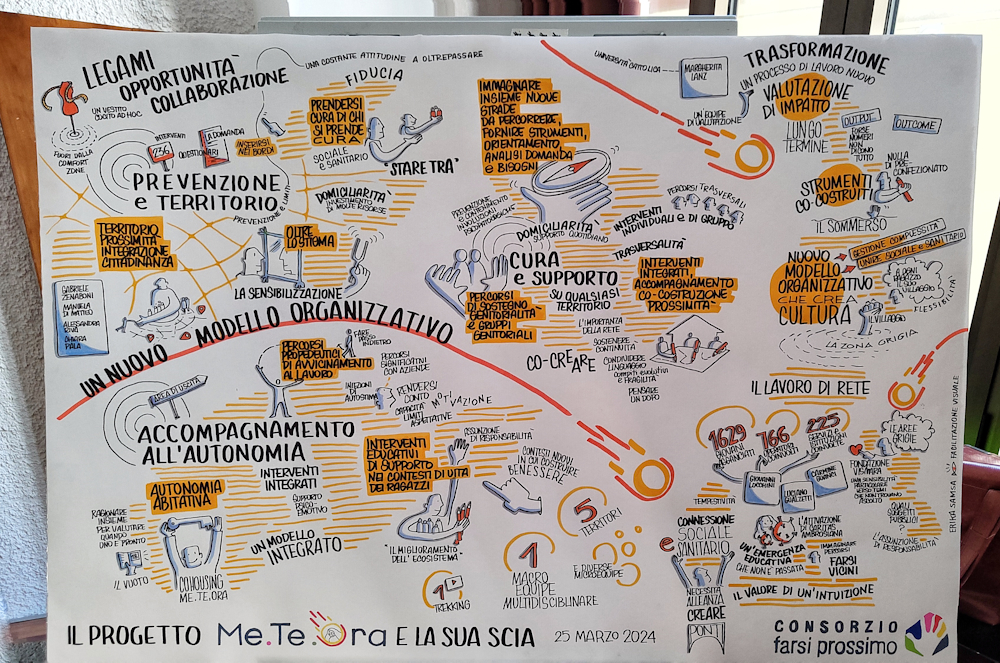 LEGAMI
OPPORTUNITÀ
COLLABORAZIONE
UN VESTITO
CUCITO AD HOC
FUORI DALLA
COMFORT
ZONE
INTERVENTI
236
QUESTIONARI
LA DOMANDA
INSERIRSI
NEI BORDI
PREVENZIONE
e TERRITORIO
PREVENZIONE e LIMITI
TERRITORIO
PROSSIMITÀ
INTEGRAZIONE
CITTADINANZA
GABRIELE
ZENABONI
MANUELA
DI MATTEO
ALESSANDRA
RIVA
CHIARA
PALA
UNA COSTANTE ATTITUDINE A OLTREPASSARE
FIDUCIA
PRENDERSI
CURA DI CHI
SI PRENDE
CURA
SOCIALE
e SANITARIO
"STARE TRA"
DOMICILIARITÀ
INVESTIMENTO
DI MOLTE RISORSE
OLTRE
LO STIGMA
LA SENSIBILIZZAZIONE
IMMAGINARE
INSIEME NUOVE
STRADE
DA PERCORRERE,
FORNIRE STRUMENTI,
ORIENTAMENTO,
ANALISI DOMANDA
e BISOGNI
PREVENZIONE
e CONTENIMENTO
INVOLUZIONI
PSICOPATOLOGICHE
DOMICILIARITÀ
SUPPORTO QUOTIDIANO
PERCORSI TRASVERSALI
INTERVENTI
INDIVIDUALI e DI GRUPPO
CURA
e SUPPORTO
SU QUALSIASI
TERRITORIO
TRASVERSALITÀ
INTERVENTI
INTEGRATI,
ACCOMPAGNAMENTO
CO-COSTRUZIONE
PROSSIMITÀ
PERCORSI
DI SOSTEGNO
GENITORIALITÀ
e GRUPPI
GENITORIALI
L'IMPORTANZA
DELLA RETE
SOSTENERE
CONTINUITÀ
CO-CREARE
CONDIVIDERE
LINGUAGGIO
COMPITI EVOLUTIVI
e FRAGILITÀ
PENSARE
UN DOPO
UNIVERSITÀ CATTOLICA
MARGHERITA
LANZ
UN'EQUIPE
DI VALUTAZIONE
TRASFORMAZIONE
UN PROCESSO DI LAVORO NUOVO
VALUTAZIONE
DI IMPATTO
LUNGO
TERMINE
OUTPUT
FORSE
NUMERI
NON
DICONO
TUTTO
OUTCOME
STRUMENTI
CO-COSTRUITI
NULLA
DI PRE-
CONFEZIONATO
IL SOMMERSO
NUOVO
MODELLO
ORGANIZZATIVO
CHE CREA
CULTURA
GESTIONE COMPLESSITÀ
UNIRE SOCIALE e SANITARIO
A OGNI
RAGAZZO
IL SUO
VILLAGGIO
FLESSIBILITÀ
IL VILLAGGIO
LA ZONA GRIGIA
UN NUOVO MODELLO ORGANIZZATIVO
AREA DI USCITA
ACCOMPAGNAMENTO
ALL'AUTONOMIA
PERCORSI
PROPEDEUTICI
DI AVVICINAMENTO
AL LAVORO
FARE
PASSO
INDIETRO
PERCORSI
SIGNIFICATIVI
CON AZIENDE
INIEZIONI
DI
AUTOSTIMA
RENDERSI
CONTO
CAPACITÀ
LIMITI
ASPETTATIVE
MOTIVAZIONE
AUTONOMIA
ABITATIVA
RAGIONARE
INSIEME
PER VALUTARE
QUANDO
UNO È PRONTO
IL VUOTO
COHOUSING
ME.TE.ORA
INTERVENTI
INTEGRATI
SUPPORTO
PSICO
EMOTIVO
UN MODELLO
INTEGRATO
INTERVENTI
EDUCATIVI
DI SUPPORTO
NEI CONTESTI DI VITA
DEI RAGAZZI
ASSUNZIONE
DI RESPONSABILITÀ
CONTESTI NUOVI
IN CUI COSTRUIRE
BENESSERE
IL MIGLIORAMENTO
DELL'ECOSISTEMA
1
TREKKING
5
TERRITORI
1
MACRO
EQUIPE
MULTIDISCIPLINARE
E DIVERSE
MICROEQUIPE
IL LAVORO DI RETE
1629
GIOVANI
AGGANCIATI
166
OPERATORI
COINVOLTI
225
SERVIZI e
ISTITUZIONI
COINVOLTE
GIOVANNI
LUCCHINI
LUCIANO
GUALZETTI
CARMINE
GUANCI
LE AREE
GRIGIE
FONDAZIONE
VISMARA
UNA SENSIBILITÀ
PARTICOLARE
VERSO TEMI
CHE NON TROVANO
ASCOLTO
QUALI
SOGGETTI
PUBBLICI
?
L'ASSUNZIONE
DI RESPONSABILITÀ
TEMPESTIVITÀ
CONNESSIONE
e SOCIALE
SANITARIO
L'ATTIVAZIONE
DI CARITAS
AMBROSIANA
UN'EMERGENZA
EDUCATIVA
CHE NON È PASSATA
IMMAGINARE
PERCORSI
FARSI
VICINI
IL VALORE DI UN'INTUIZIONE
NECESSITÀ
ALLEANZA
CREARE
PONTI
ERIKA SAMSA FACILITAZIONE VISUALE
IL PROGETTO Me.Te.Ora E LA SUA SCIA 25 MARZO 2024
CONSORZIO
farsi prossimo